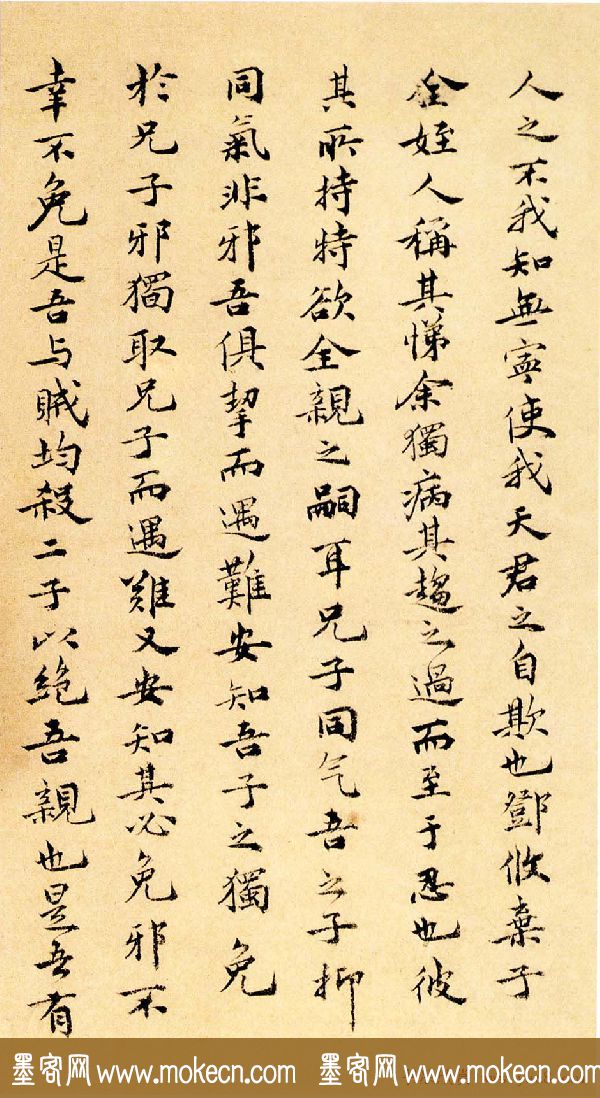 人之不我知無寧使我天君之自欺也鄧攸棄子
全姪人稱其悌余獨病其趨之過而至于忍也彼
其所持特欲全親之嗣耳兄子同气吾之子抑
同氣非邪吾俱挈而遇難安知吾子之獨免
於兄子邪獨取兄子而遇難又安知其必免邪不
幸不免是吾与賊均殺二子以絕吾親也是吾有
墨客网 www.mokecn.com 墨客网 www.mokecn.com